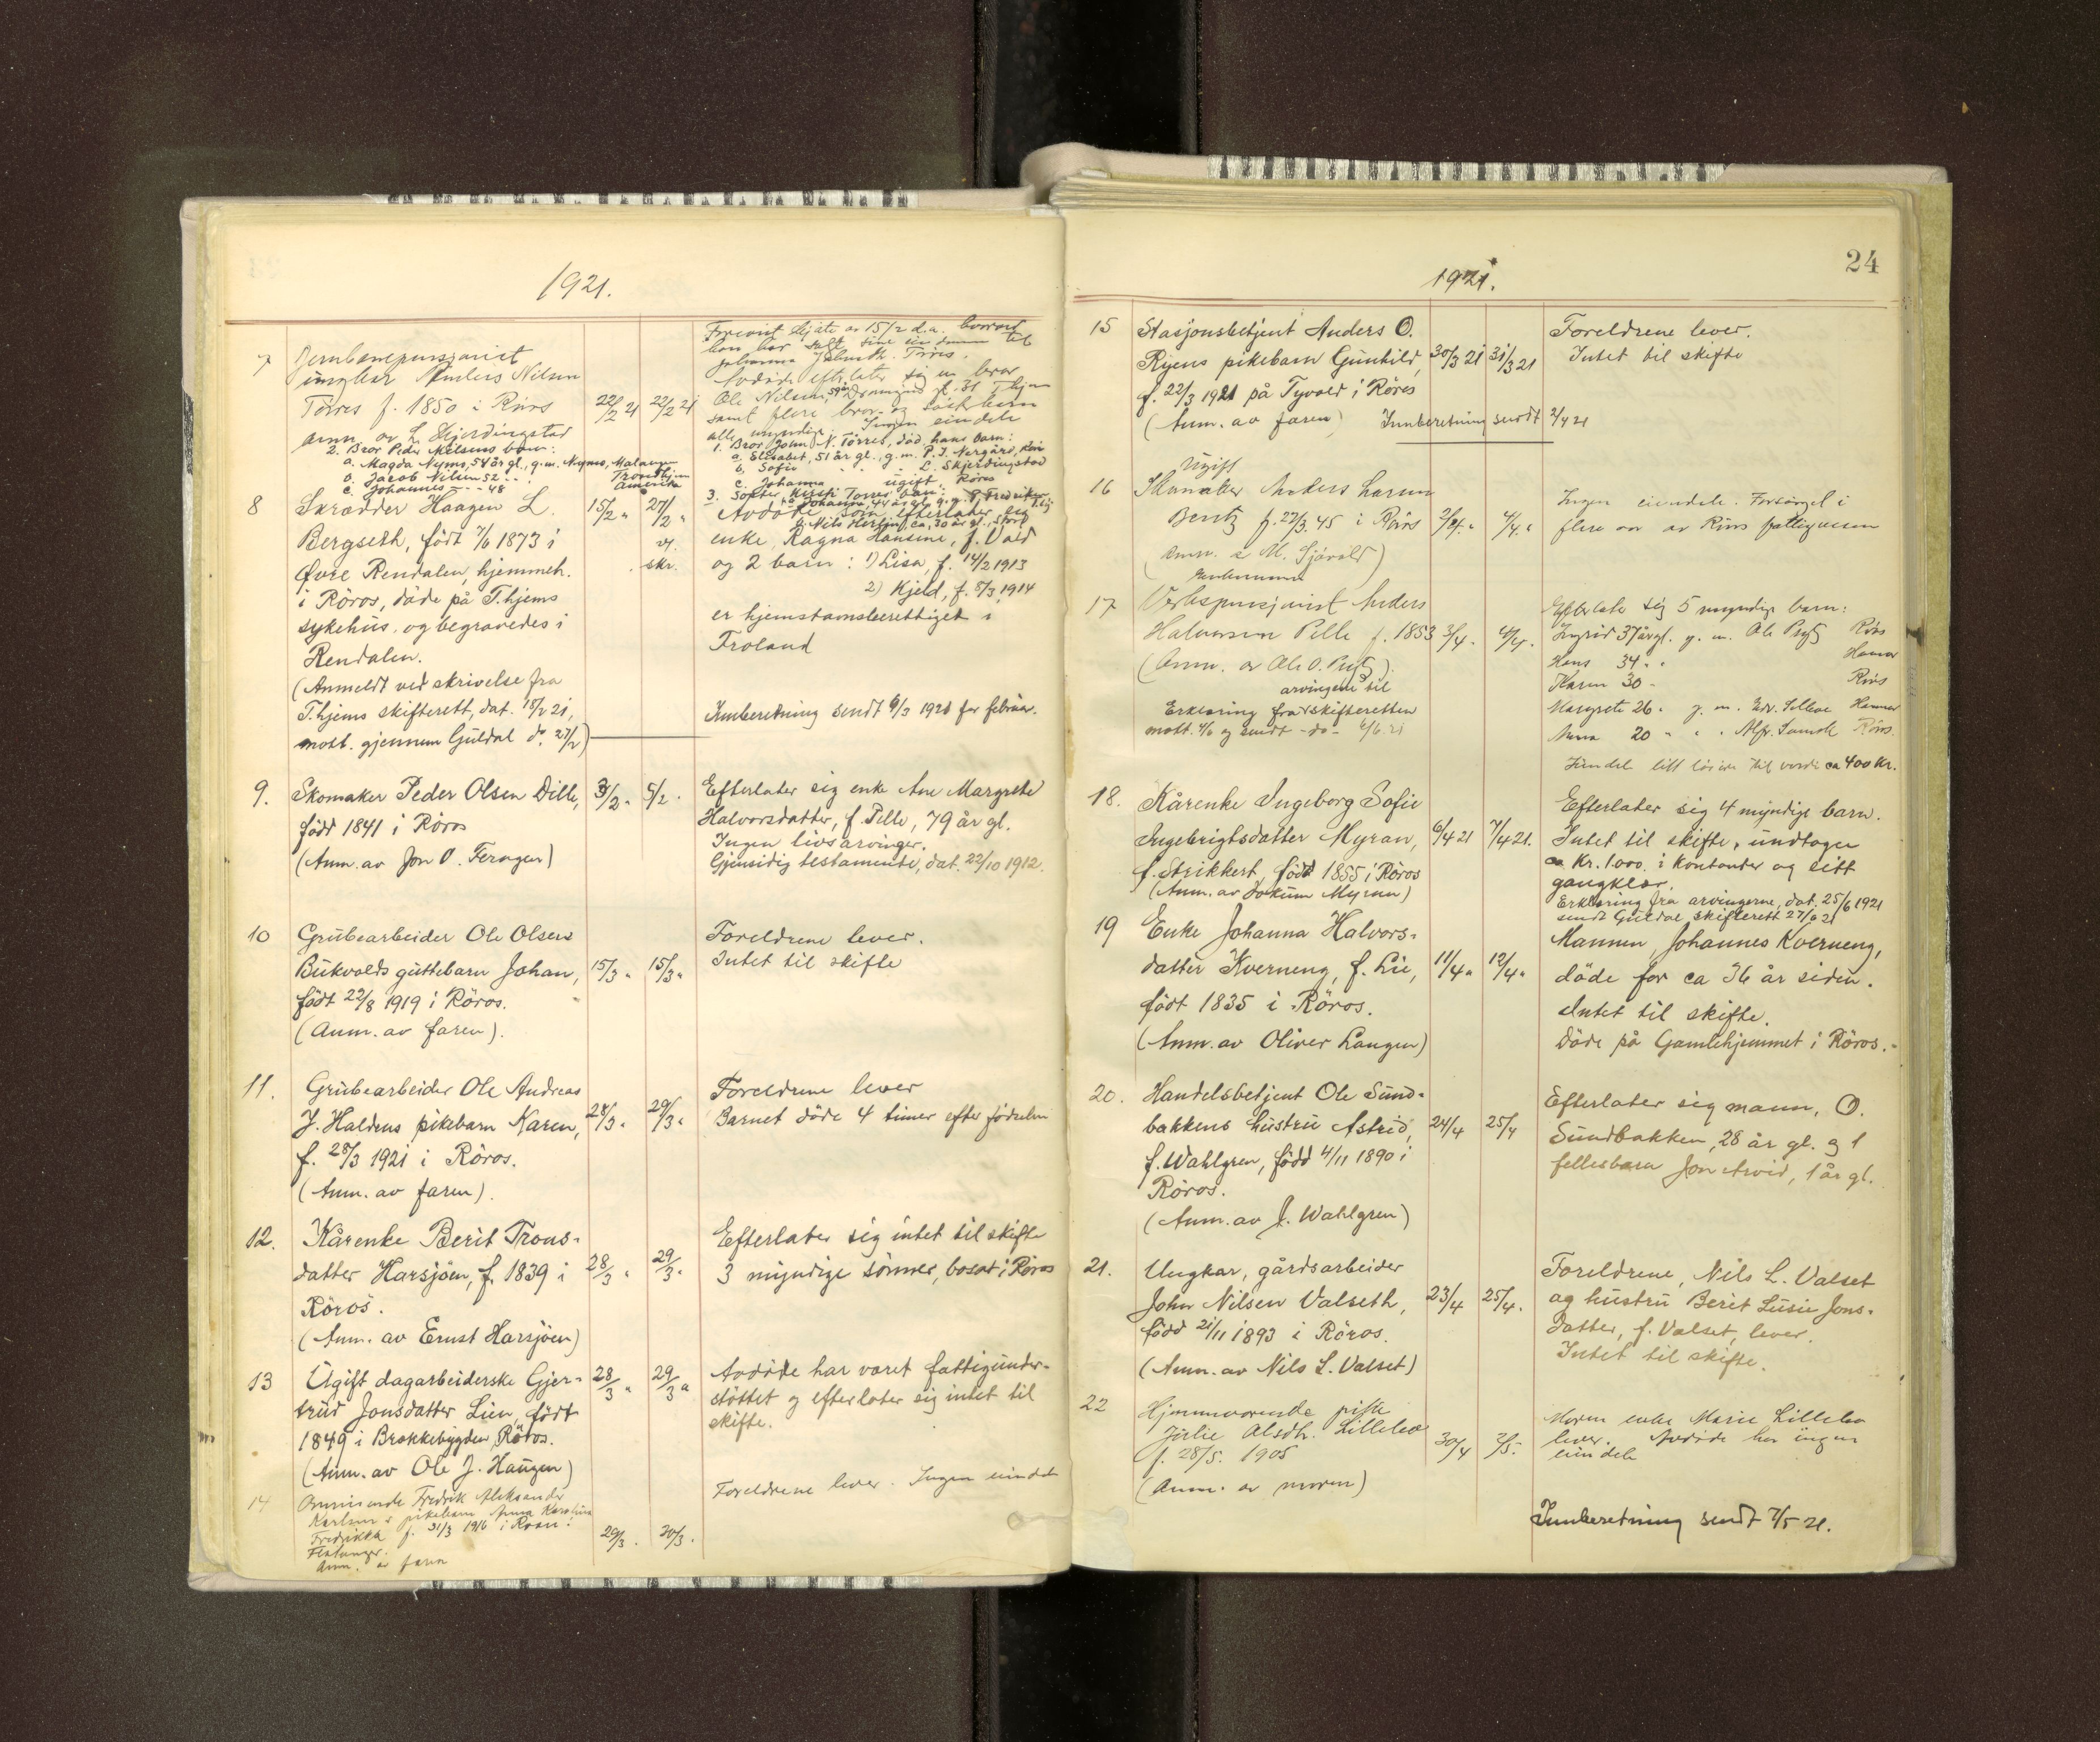 1921.
7
Jernbanepensjonist
ungkar Anders Nilsen
Törres f. 1850 i Rörös
anm. av L. Skjerdingstad
22/2 21
22/2 21
Forevist skjøte av 15/2 d.a. hvorved
han har solgt sine eiendommer til
Johanna Törres.
Avdöde efterlater sig en bror
Ole Nilsen, Dronningens gt. 31 Thjem
samt flere bror- og søsterbarn
alle myndige. Ingen eiendele
1. Bror John N. Törres, död, hans barn:
a. Elisabet, 51 år gl., g.m. P. J. Nergård,
b. Sofie L. Skjerdingstad
c. Johanna ugift, Röros
2. Bror Peder Nilsens barn:
a. Magda Nyms, 54 år gl., g.m. Nyms, Malangen
b. Jacob Nilsen 52 Trondhjem
c. Johannes 48 Amerika
3. Söster Kirsti Törres barn:
a. Johanna, 44 år gl., g.m. P. Fredriksen
b. Nils Herlin, ca. 30 år gl.
8
Skrædder Haagen L.
Bergseth, född 7/6 1873 i
Øvre Rendalen, hjemmeh.
i Röros, döde på T.hjems
sykehus, og begravedes i
Rendalen.
(Anmeldt ved skrivelse fra
T.hjems skifterett, dat. 18/2 21,
mott. gjennem Guldal do. 27/2)
15/2 "
27/2 "
vf.
skr.
Avdöde, som efterlater sig
enke, Ragna Hansine, f. Vold
og 2 barn: 1) Lisa, f. 14/2 1913
2) Kjeld, f. 8/3 1914
er hjemstamsberettiget i
Froland
Innberetning sendt 6/3 1921 for februar.
9.
Skomaker Peder Olsen Dille,
född 1841 i Röros
(Anm. av Jon O. Feragen)
3/2 "
5/2 "
Efterlater sig enke Ane Margrete
Halvorsdatter, f. Pelle, 79 år gl.
Ingen livsarvinger.
Gjensidig testamente, dat. 22/10 1912.
10
Grubearbeider Ole Olsens
Bukvolds guttebarn Johan,
född 22/8 1919 i Röros.
(Anm. av faren).
15/3 "
15/3 "
Foreldrene lever.
Intet til skifte
11.
Grubearbeider Ole Andreas
J. Haldens pikebarn Karen,
f. 28/3 1921 i Röros.
(Anm. av faren).
28/3 "
29/3 "
Foreldrene lever
Barnet döde 4 timer efter födselen
12.
Kårenke Berit Trons-
datter Harsjöen, f. 1839 i
Röros.
(Anm. av Ernst Harsjöen)
28/3 "
29/3 "
Efterlater sig intet til skifte
3 myndige sönner, bosat i Röros
13
Ugift dagarbeiderske Gjer-
trud Jonsdatter Lien, född
1849 i Brekkebygden, Röros.
(Anm. av Ole J. Haugen)
28/3 "
29/3 "
Avdöde har været fattigunder-
stöttet og efterlater sig intet til
skifte.
14
Omreisende Fredrik Aleksander
Karlsens pikebarn Anna Karolina
Fredrikka f. 31/3 1916 i Roan.
Flatanger.
Anm. av faren
29/3.
30/3.
Foreldrene lever. Ingen eiendele
24
1921.
15
Stasjonsbetjent Anders O.
Ryens pikebarn Gunhild,
f. 22/3 1921 på Tyvold i Röros
(Anm. av faren)
30/3 21
31/3 21
Foreldrene lever.
Intet til skifte
Innberetning sendt 2/4 21
16
Ugift
Skomaker Anders Larsen
Bentz f. 27/3 45 i Röros
(anm. av M. Sjövold)
2/4. "
4/4. "
Ingen eiendele. Forsörget i
flere aar av Röros fattigvesen
17
Enkemann
Verkspensjonist Anders
Halvorsen Pelle f. 1853
(Anm. av Ole O. Prytz)
3/4.
4/4.
Efterlater sig 5 myndige barn:
Ingrid 37 år gl. g.m. Ole Prytz Rörøs
Hans 34 " Hamar
Karen 30 " Rörøs
Margrete 26 " g.m. Hamar
Anna 20 " Alfr. Röros
Eiendele litt lösöre til verdi ca 400 kr.
Erklæring fra arvingene til skifteretten
mott. 4/6 og sendt -do- 6/6 21
18.
Kårenke Ingeborg Sofie
Ingebrigtsdatter Myran,
f. Strikkert, född 1855 i Röros
(Anm. av Jokum Myran)
6/4 21
7/4 21.
Efterlater sig 4 myndige barn.
Intet til skifte, undtagen
ca Kr. 1000. i kontanter og sitt
gangklær.
Erklæring fra arvingerne, dat. 25/6 1921
sendt Guldal skifterett 27/6 21
19
Enke Johanna Halvors-
datter Kverneng, f. Lie,
född 1835 i Röros.
(Anm. av Oliver Langen)
11/4 "
12/4 "
Mannen, Johannes Kverneng,
döde for ca 36 år siden.
Intet til skifte.
Döde på Gamlehjemmet i Röros.
20.
Handelsbetjent Ole Sund-
bakkens hustru Astrid,
f. Wahlgren, född 4/11 1890 i
Röros.
(Anm. av J. Wahlgren)
24/4
25/4
Efterlater sig mann, O.
Sundbakken, 28 år gl. og 1
fellesbarn Jon Arvid, 1 år gl.
21.
Ungkar, gårdsarbeider
John Nilsen Valseth,
född 21/11 1893 i Röros.
(Anm. av Nils L. Valset)
23/4
25/4.
Foreldrene, Nils L. Valset
og hustru Berit Lusie Jons-
datter, f. Valset, lever.
Intet til skifte.
22
Hjemmeværende pike
Julie Alsdh. Lillebo
f. 28/5. 1905
(Anm. av moren)
30/4
2/5.
Moren enke Marie Lillebo
lever. Avdöde har ingen
eiendele
Innberetning sendt 2/5 21.